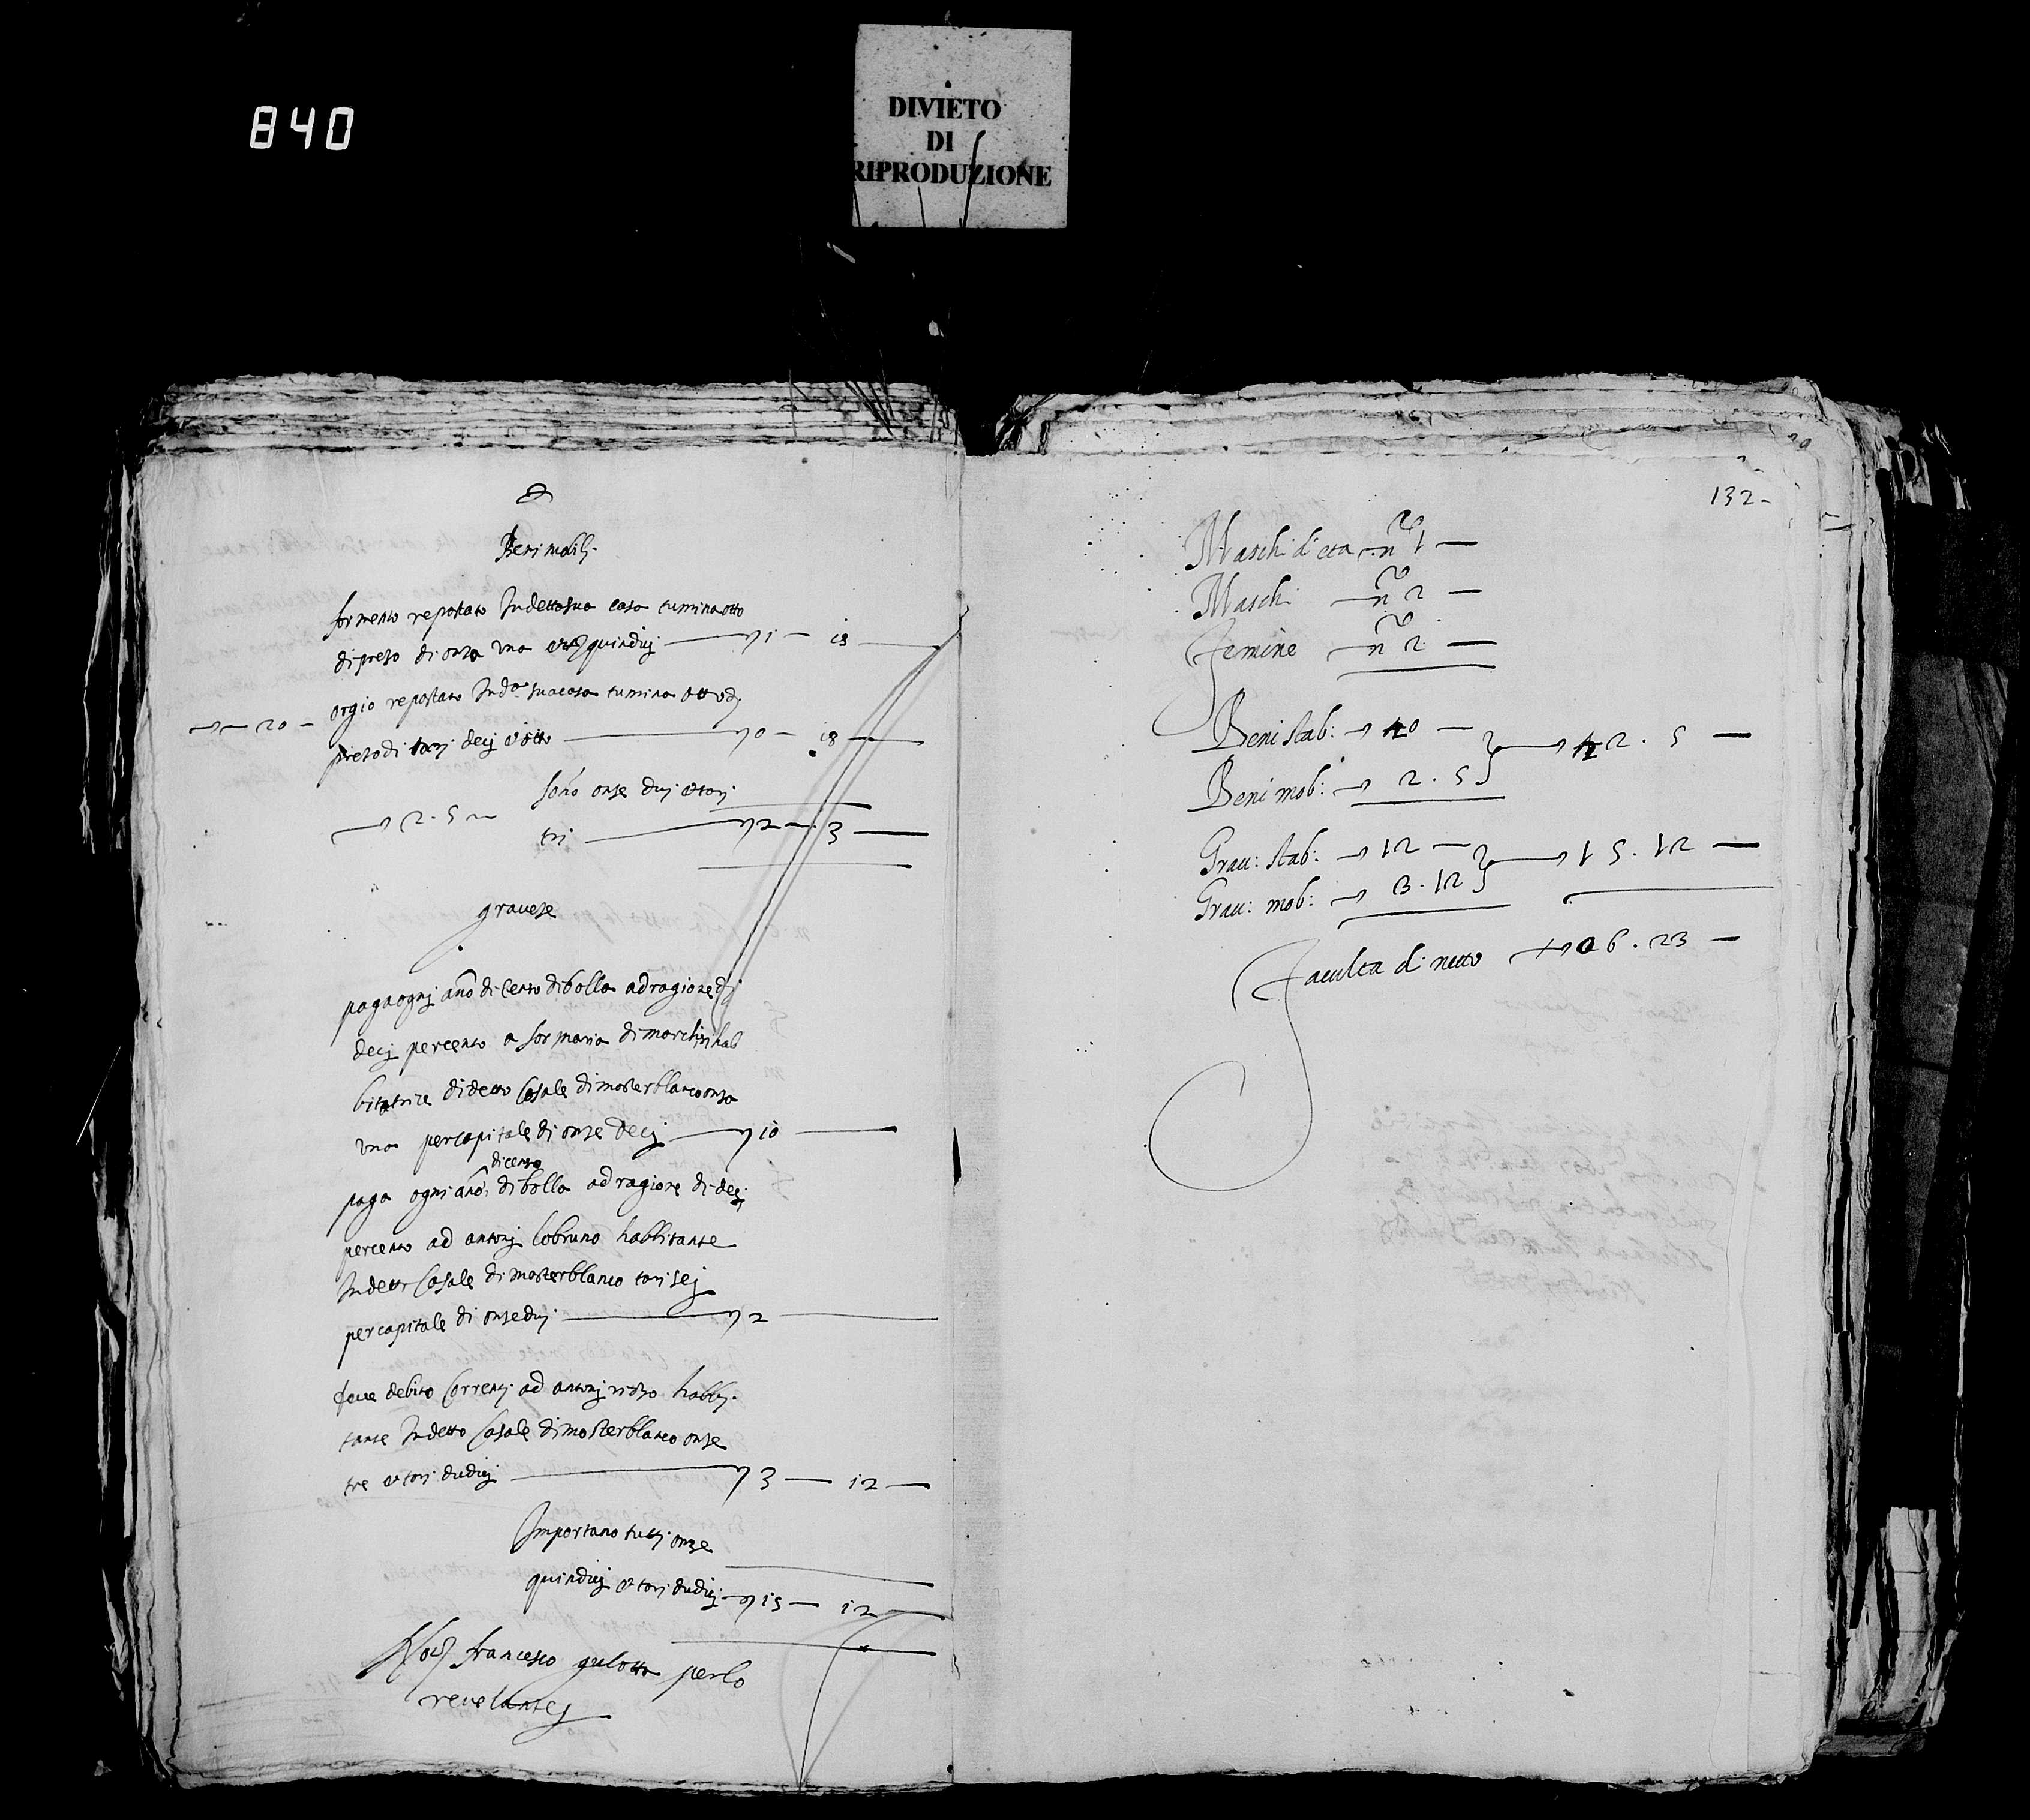 840
DIVIETO
DI
RIPRODUZIONE
Beni mobili.
formento repostato In detta sua casa tumina otto
di prezo di onza una et quindicj 1 - 15
orgio repostato In d.a sua casa tumina otto di
20
prezo di tarj decj et otto 0 - 18
sono onze duj et tarj
2.5
tri 2 - 3
graveze
paga ognj anno di censo di bolla ad ragione dj
decj per cento a sor maria di marchisi hab
bitatrice di detto Casale di mosterblanco onza
una per capitale di onze decj 10
di censo
paga ogni anno di bolla ad ragione di decj
per cento ad antonj lobruno habbitante
In detto Casale di mosterblanco tari sej
per capitale di onze duj 2
deve debito correntj ad antonj rizzo habbi-
tante In detto Casale di mosterblanco onze
tre et tarj dudicj 3 - 12
Importano tuttj onze
quindicj et tarj dudicj 15 - 12
francesco gulotta per lo
revelante
132-
Maschi d' eta n.o 1
Maschi n.o 2
Femine n.o 2
Beni stab: 40 42.5
Beni mob: 2.5
Grav: stab: 12 15.12
Grav: mob: 3.12
Faculta di netto 26.23